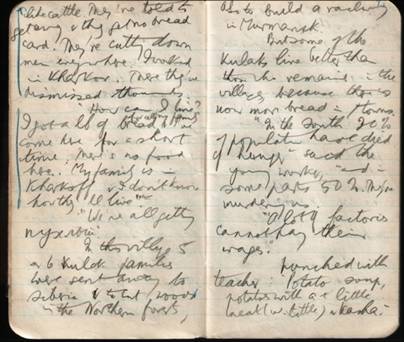 like cattle. They're told to
get away & they get no bread
card. They're cutting down
men everywhere. I worked
in Kharkov. There they've
dismissed thousands.
"How can I live?
I got a lb of bread for all my family
come here for a short
time. There's no food
here. My family is in
Kharkoff & I don't know
how they'll live"
"We're all getting
In this village 5
or 6 Kulak families
were sent away to
Siberia & to cut wood
in the Northern forests,
& to build a railway
in Murmansk.
But some of the
Kulaks live better than
those who remained in the
villages because there's
now more bread in towns.
"In the South 20%
of population have died
of hunger" said the
young worker, "and in
some parts 50%. They're
murdering us"
"A lot of factories
cannot pay their
wages."
Lunched with
teacher: Potato soup,
potatoes with a little
meat (v. little) & kasha.